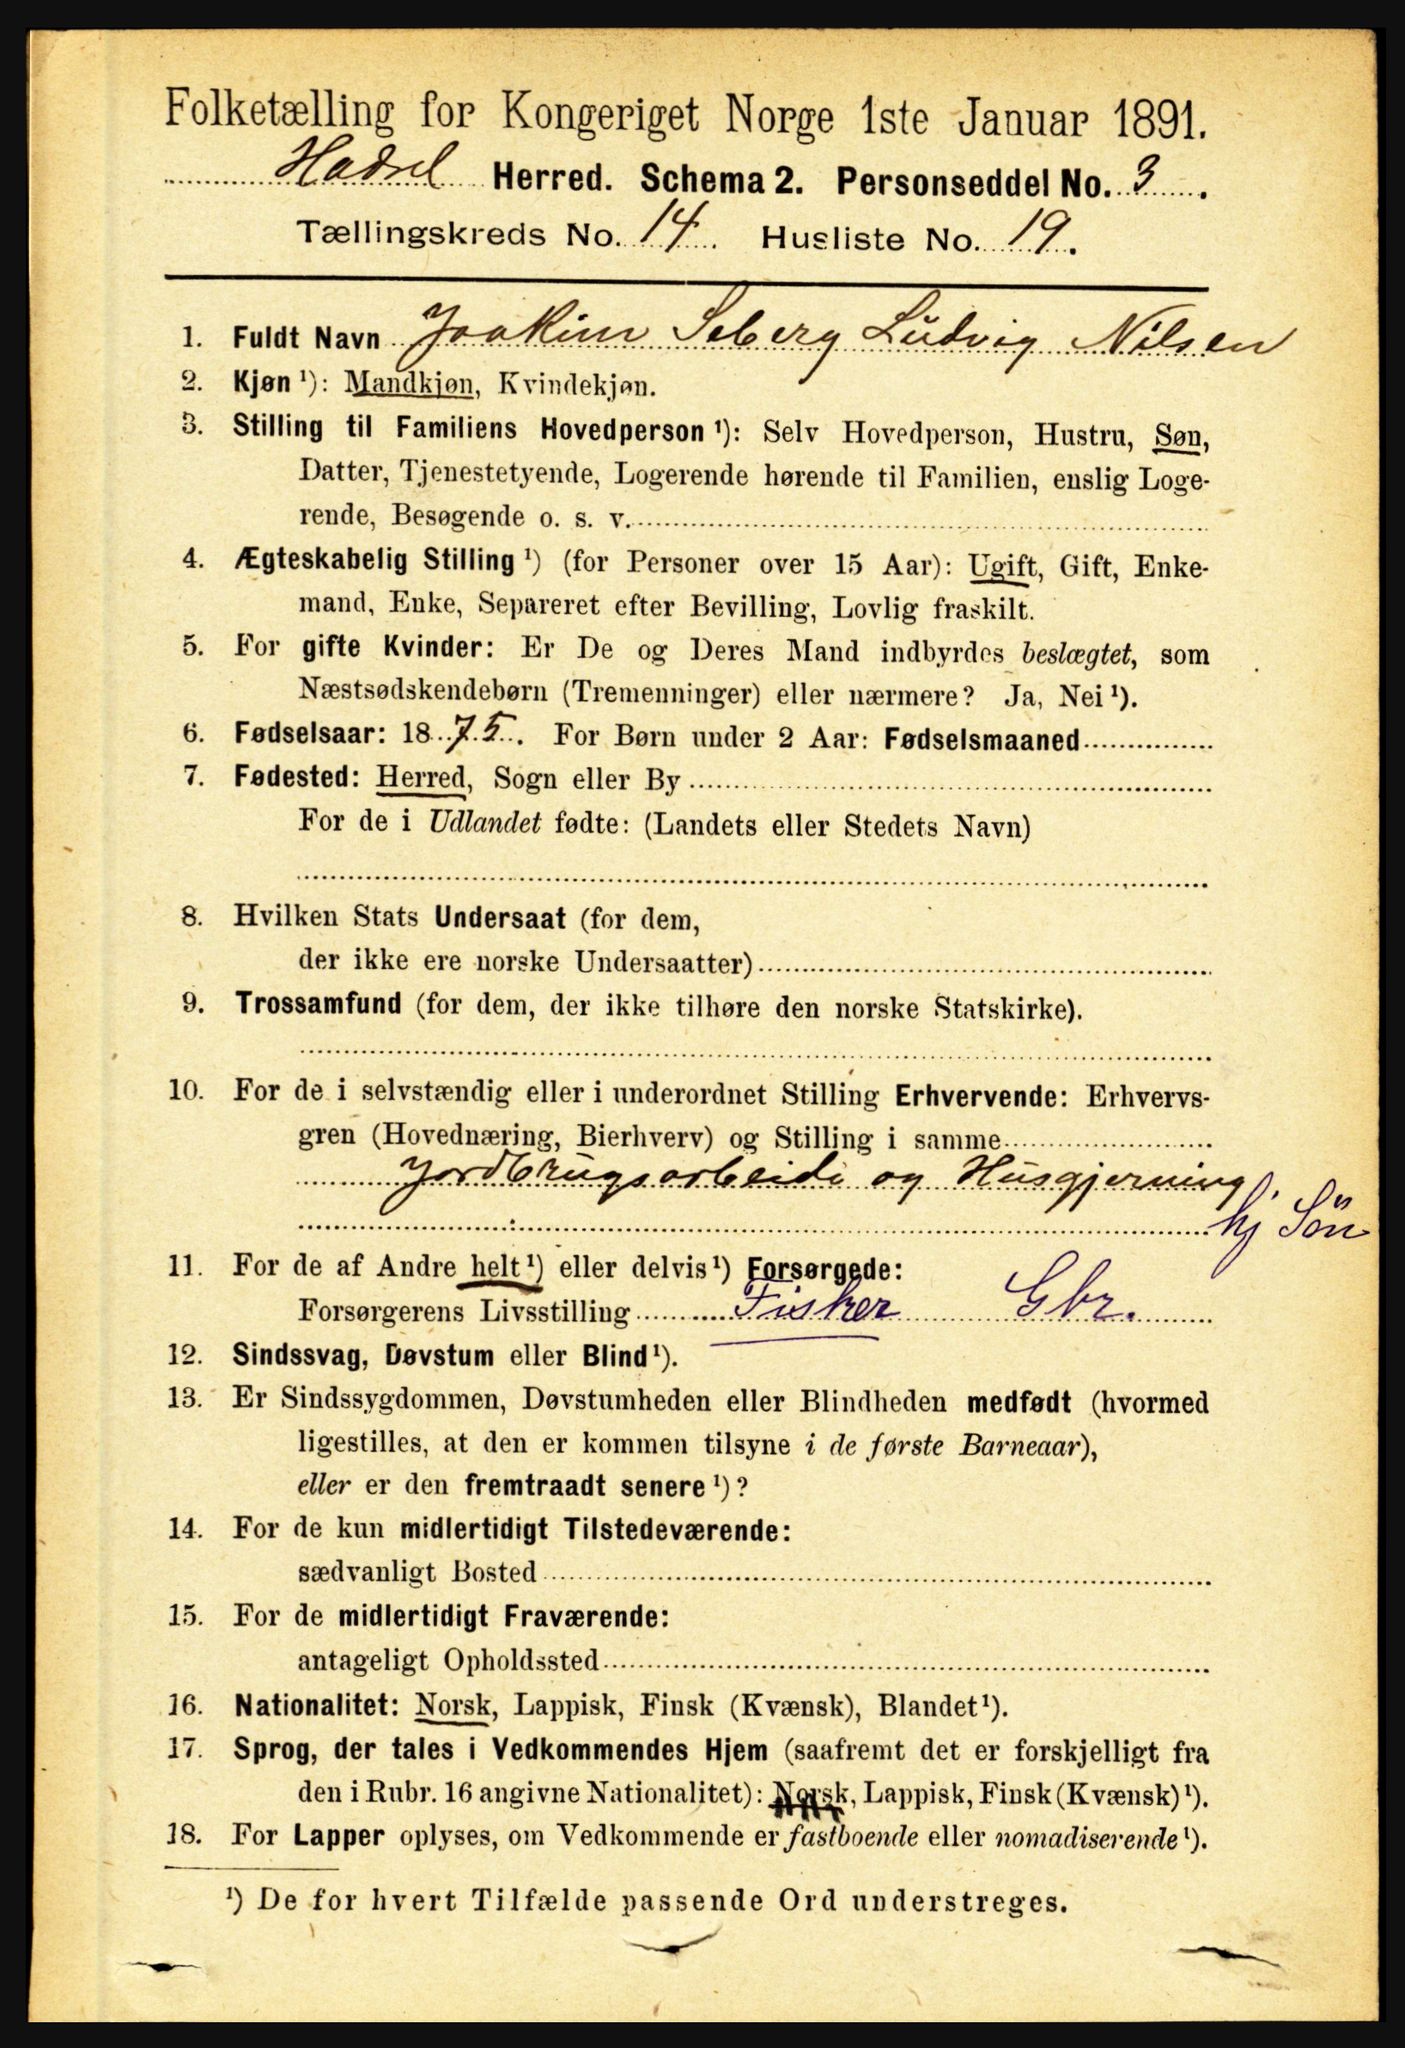 Folketælling for Kongeriget Norge 1ste Januar 1891.
Hadsel Herred. Schema 2. Personseddel No. 3.
Tællingskreds No. 14. Husliste No. 19.
1. Fuldt Navn Joakim Seberg Ludvig Nilsen
2. Kjøn ¹): Mandkjøn, Kvindekjøn.
3. Stilling til Familiens Hovedperson ¹): Selv Hovedperson, Hustru, Søn,
Datter, Tjenestetyende, Logerende hørende til Familien, enslig Loge-
rende, Besøgende o. s. v.
4. Ægteskabelig Stilling ¹) (for Personer over 15 Aar): Ugift, Gift, Enke-
mand, Enke, Separeret efter Bevilling, Lovlig fraskilt.
5. For gifte Kvinder: Er De og Deres Mand indbyrdes beslægtet, som
Næstsødskendebørn (Tremenninger) eller nærmere? Ja, Nei ¹).
6. Fødselsaar: 1875. For Børn under 2 Aar: Fødselsmaaned
7. Fødested: Herred, Sogn eller By
For de i Udlandet fødte: (Landets eller Stedets Navn)
8. Hvilken Stats Undersaat (for dem,
der ikke ere norske Undersaatter)
9. Trossamfund (for dem, der ikke tilhøre den norske Statskirke).
10. For de i selvstændig eller i underordnet Stilling Erhvervende: Erhvervs-
gren (Hovednæring, Bierhverv) og Stilling i samme
Jordbrugsarbeide og Husgjerning.
hj Søn
11. For de af Andre helt ¹) eller delvis ¹) Forsørgede:
Forsørgerens Livsstilling Fisker Gbr.
12. Sindssvag, Døvstum eller Blind ¹).
13. Er Sindssygdommen, Døvstumheden eller Blindheden medfødt (hvormed
ligestilles, at den er kommen tilsyne i de første Barneaar),
eller er den fremtraadt senere ¹)?
14. For de kun midlertidigt Tilstedeværende:
sædvanligt Bosted
15. For de midlertidigt Fraværende:
antageligt Opholdssted
16. Nationalitet: Norsk, Lappisk, Finsk (Kvænsk), Blandet ¹).
17. Sprog, der tales i Vedkommendes Hjem (saafremt det er forskjelligt fra
den i Rubr. 16 angivne Nationalitet): Norsk, Lappisk, Finsk (Kvænsk) ¹).
18. For Lapper oplyses, om Vedkommende er fastboende eller nomadiserende ¹).
¹) De for hvert Tilfælde passende Ord understreges.